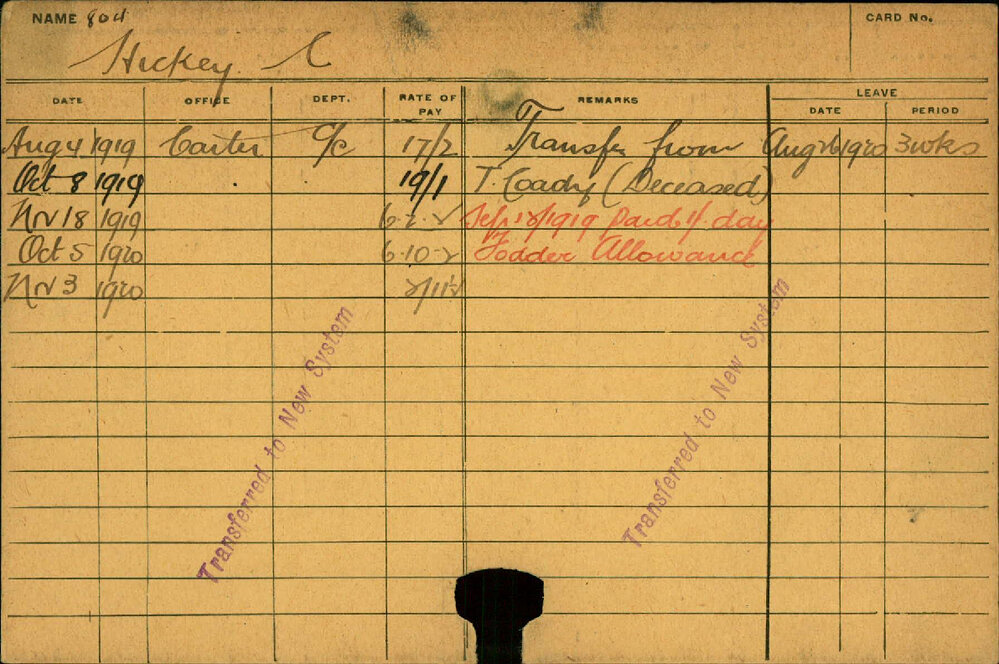 NAME 804 CARD No.
Hickey C
DATE OFFICE DEPT. RATE OF PAY REMARKS LEAVE DATE PERIOD
Aug 4 1919 Carter C/C 17/2 Transfer from Aug 26 1920 3 wks
Oct 8 1919 19/1 T. Coady (Deceased)
Nov 18 1919 Sep 12/1919 paid 1/- day
Oct 5 1920 6-10-2 Fodder Allowance
Nov 3 1920
Transferred to New System
Transferred to New System